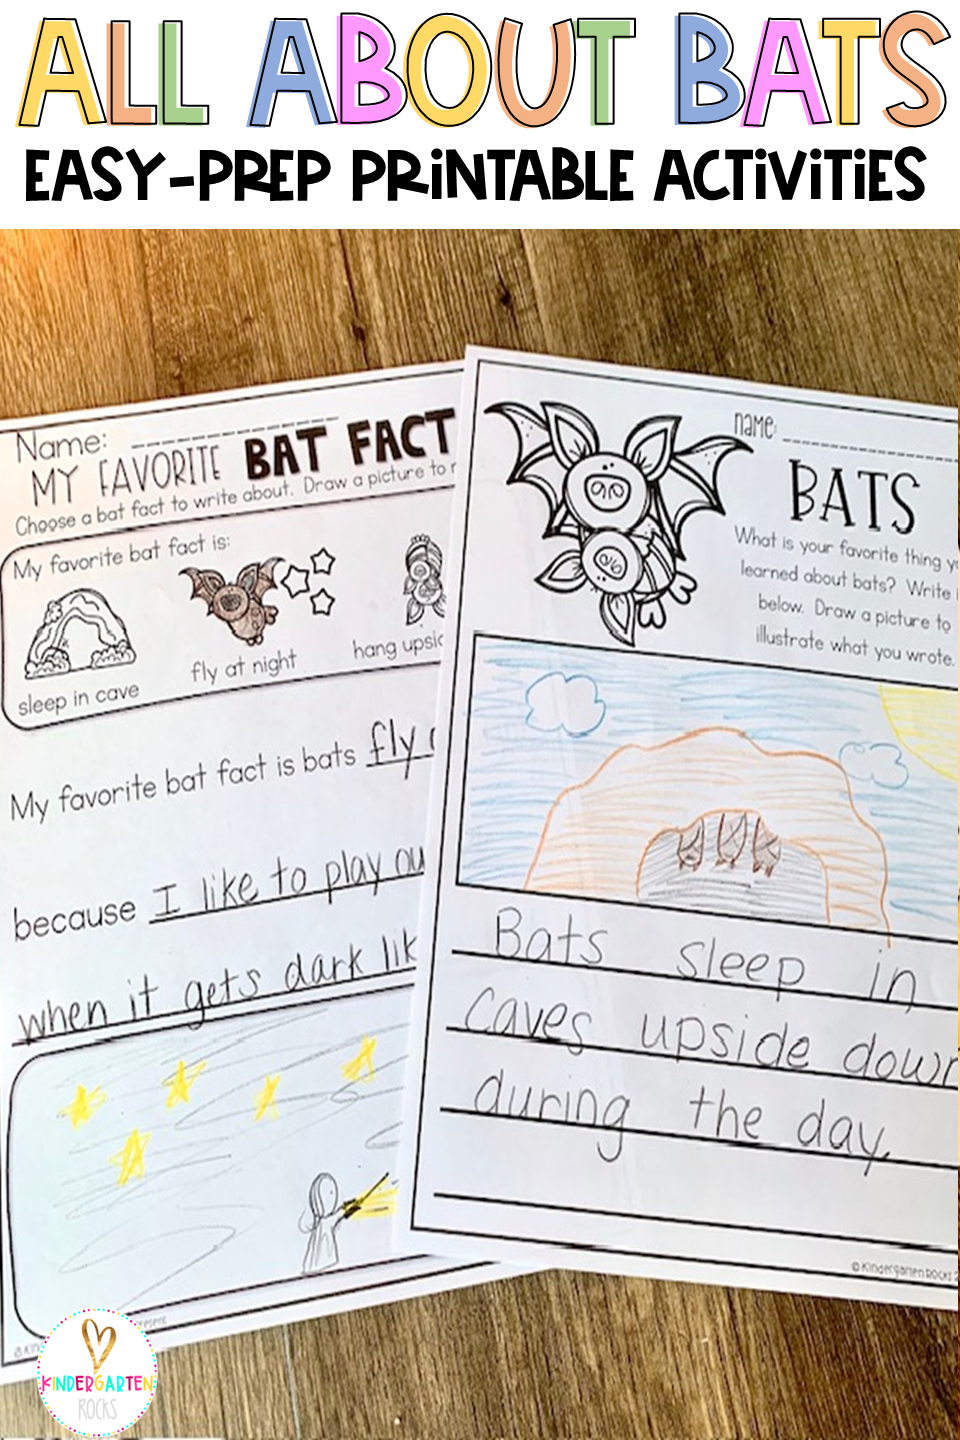 ALL ABOUT BATS
EASY-PREP PRINTABLE ACTIVITIES
Name:
MY FAVORITE BAT FACT
Choose a bat fact to write about. Draw a picture to
My favorite bat fact is:
sleep in cave
fly at night
hang
My favorite bat fact is bats fly
because I like to play
when it gets dark
name:
BATS
What is your favorite thing
learned about bats? Write
below. Draw a picture to
illustrate what you wrote.
Bats sleep in
caves upside down
during the day.
© Kindergarten Rocks
KINDERGARTEN
ROCKS